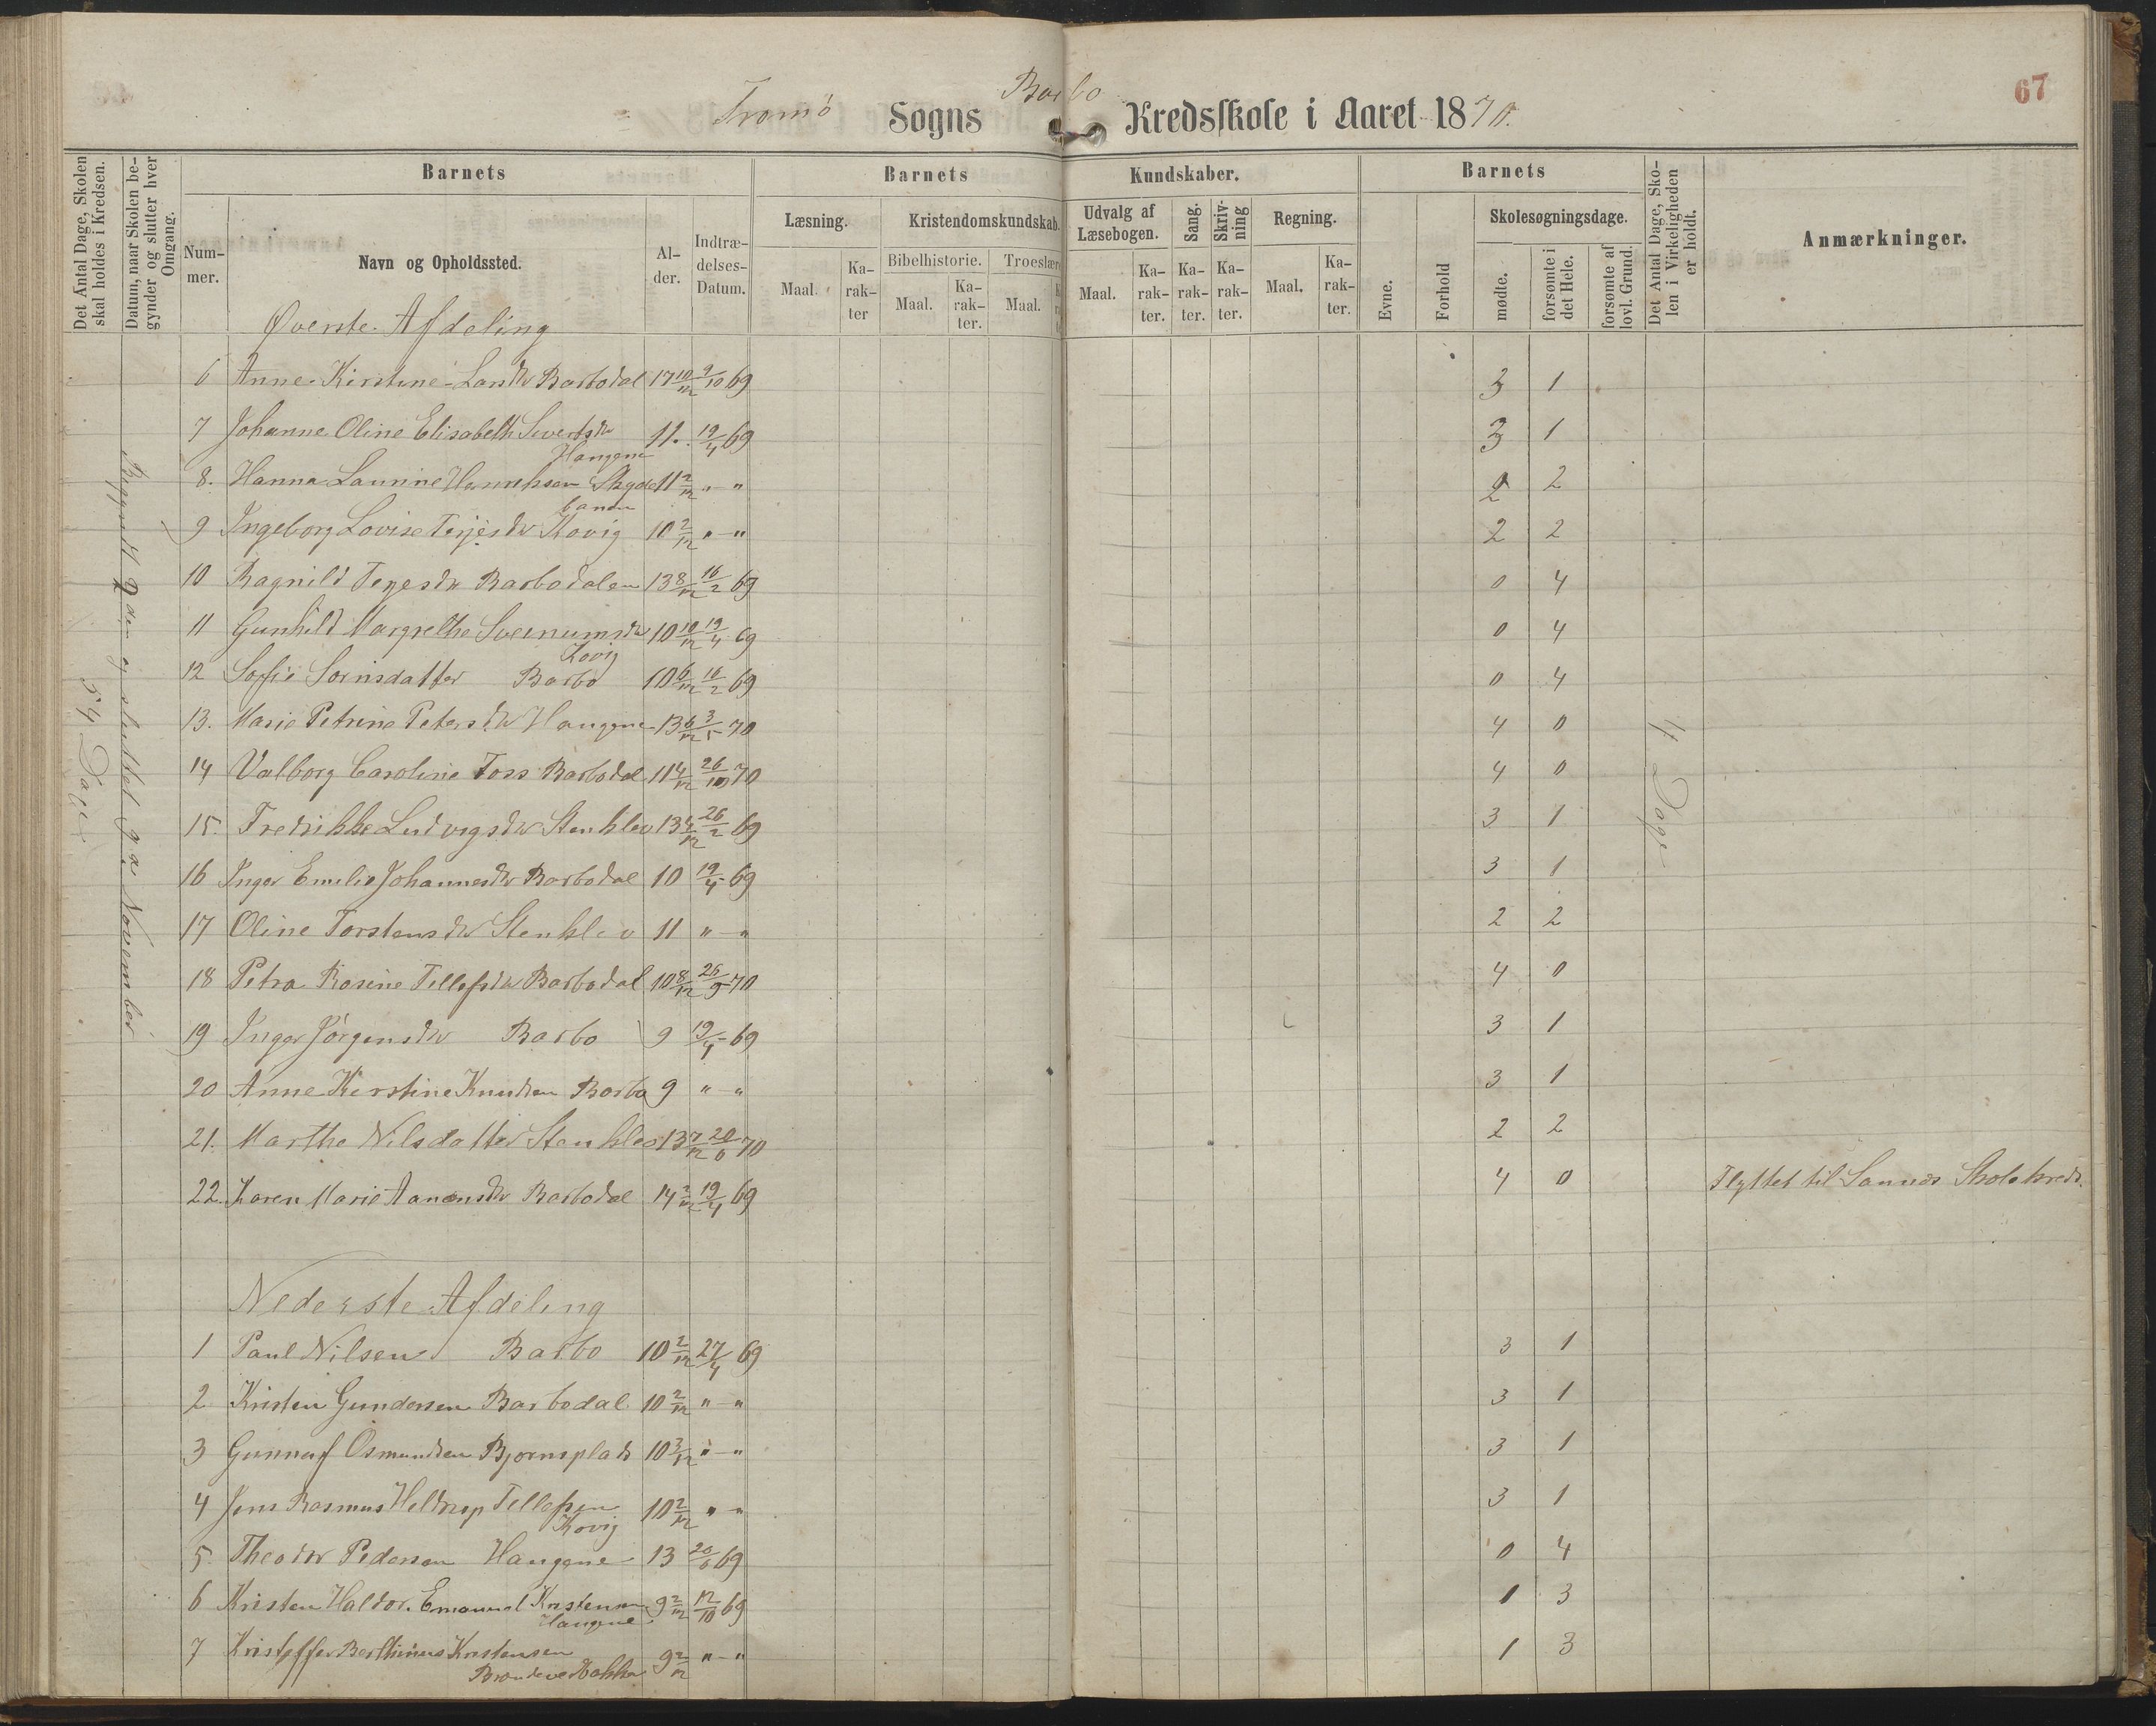 67
Tromö Sogns Barbo Kredsskole i Aaret 1870.
Det Antal Dage, Skolen skal holdes i Kredsen.
Datum, naar Skolen begynder og slutter hver Omgang.
Barnets
Nummer.
Navn og Opholdssted.
Alder.
Indtrædelses-Datum.
Barnets Kundskaber.
Læsning.
Maal.
Karakter
Kristendomskundskab.
Bibelhistorie.
Maal.
Karakter.
Troeslær
Maal.
Udvalg af Læsebogen.
Maal.
Karakter.
Sang.
Karakter.
Skrivning
Karakter.
Regning.
Maal.
Karakter.
Barnets
Evne.
Forhold
Skolesøgningsdage.
mødte.
forsømte i det Hele.
forsømte af lovl. Grund.
Det Antal Dage, Skolen i Virkeligheden er holdt.
Anmærkninger.
54 Dage
og sluttet November
4 Dage
Øverste Afdeling
6 Anne Kirstine Larsdtr Barbodal 9/10 69 3 1
7 Johanne Oline Elisabeth Sivertsdtr Haugene 11. 19/4 69 3 1
8. Hanna Laurine Henriksen 11 2/12 " - " 2 2
9 Ingeborg Lovise Terjesdtr Kovig 10 2/12 " - " 2 2
10 Ragnild Terjesdtr Barbodalen 13 8/12 16/2 69 0 4
11 Gunhild Margrethe Sveinumsdtr Kovig 10 10/12 19/4 69 0 4
12 Sofie Sørnsdatter Barbo 10 6/12 16/2 69 0 4
13. Marie Petrine Petersdtr Haugene 13 6/12 3/5 70 4 0
14 Valborg Caroline Foss Barbodal 11 4/12 26/10 70 4 0
15. Fredrikke Ludvigsdtr Stenklev 13 4/12 26/2 69 3 1
16 Inger Emilie Johannesdtr Barbodal 10 19/4 69 3 1
17 Oline Torstensdtr Stenklev 11 " - " 2 2
18 Petra Rosine Tellefsdtr Barbodal 10 8/12 26/9 70 4 0
19 Inger Jörgensdtr Barbo 9 19/4 69 3 1
20 Anne Kirstine Knudsen Barbo 9 " - " 3 1
21. Marthe Nilsdatter Stenklev 13 7/12 20/6 70 2 2
22. Karen Marie Aanonsdtr Barbodal 14 2/12 19/4 69 4 0 Flyttet til Sannes Skolekreds.
Nederste Afdeling
1 Paul Nilsen Barbo 10 2/12 27/4 69 3 1
2 Kristen Gundersen Barbodal 10 2/12 " - " 3 1
3 Gunnuf Osmundsen Bjornsplads 10 3/12 " - " 3 1
4 Jens Rasmus Tellefsen Kovig 10 2/12 " - " 3 1
5. Theodor Pedersen Haugene 13 20/6 69 0 4
6 Kristen Haldor Emanuel Kristensen Haugene 9 2/12 12/10 69 1 3
7 Kristoffer Berthinius Kristensen 9 2/12 " - " 1 3